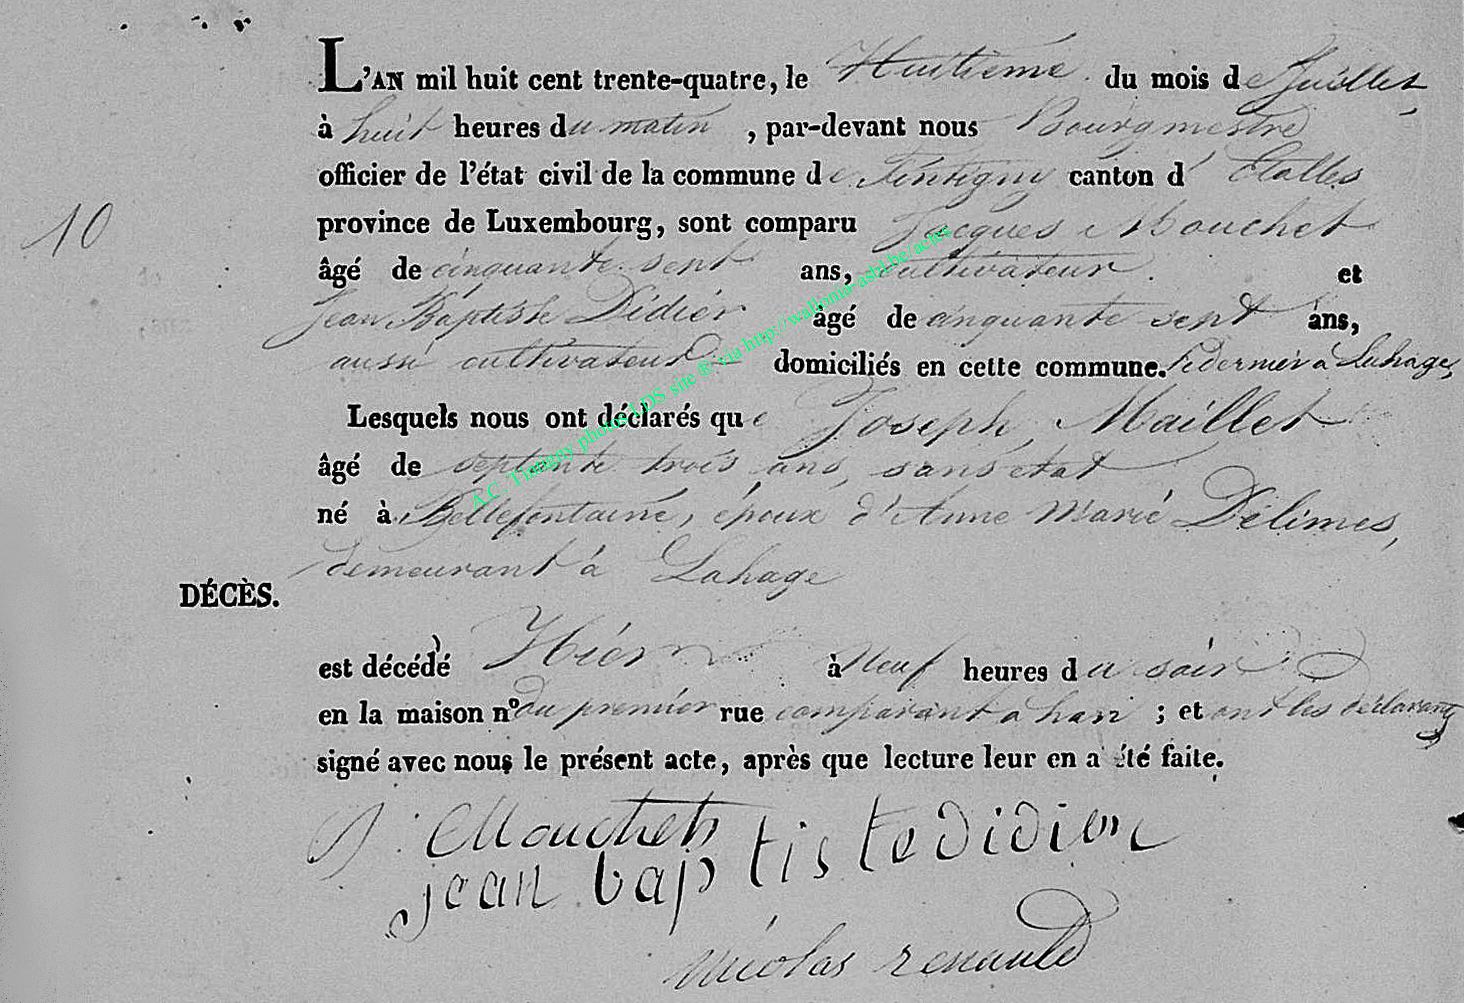 L'AN mil huit cent trente-quatre, le Huitiéme du mois de Juillet,
à huit heures du matin , par-devant nous Bourgmestre
officier de l'état civil de la commune de Tintigny canton d' Etalles
province de Luxembourg, sont comparu Jacques Mouchet
10
âgé de cinquante sept ans, cultivateur et
Jean Baptiste Didier âgé de cinquante sept ans,
aussi cultivateur domiciliés en cette commune. le dernier à Lahage,
Lesquels nous ont déclarés que Joseph Maillet
âgé de septente trois ans, sans etat
né à Bellefontaine, époux d'Anne Marie Délimes,
demeurant à Lahage
DÉCÈS.
est décédé Hier à Neuf heures du soir
en la maison nº du premier rue comparant à han ; et ont les déclarants
signé avec nous le présent acte, après que lecture leur en a été faite.
J. Mouchet
jean baptiste didier
Nicolas renauld
A.C. Tintigny photos LDS site ® via http://wallonia-asbl.be/actes